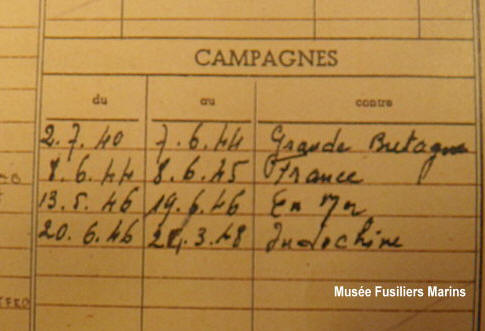 CAMPAGNES
du au contre
2.7.40 7.6.44 Grande Bretagne
8.6.44 8.6.45 France
13.5.46 19.6.46 En Mer
20.6.46 .3.48 Indochine
Musée Fusiliers Marins